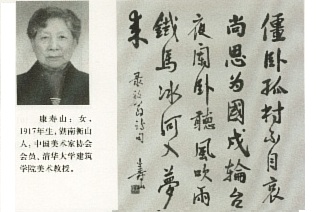 康寿山：女，
1917年生，湖南衡山
人，中国美术家协会
会员，清华大学建筑
学院美术教授。
僵卧孤村不自哀
尚思为國戍輪台
夜闌卧聽風吹雨
鐵馬冰河入夢
来
放翁诗句
寿山